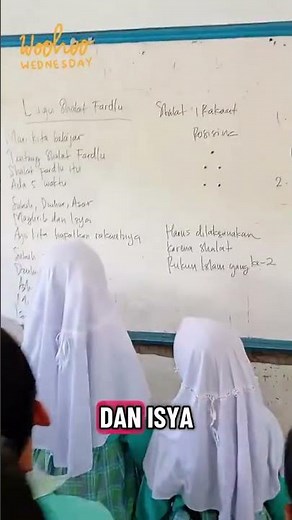 Woohoo
WEDNESDAY
Lagu Shalat Fardlu
Mari kita belajar
Tentang Shalat Fardlu
Shalat Fardlu itu
Ada 5 waktu
Subuh, Duhur, Asar
Maghrib dan Isya
Ayo kita hapalkan rakaatnya
Subuh
Shalat 1 Rakaat
Posisinz
1.
2.
Harus dilaksanakan
karena shalat
Rukun Islam yang ke-2
DAN ISYA